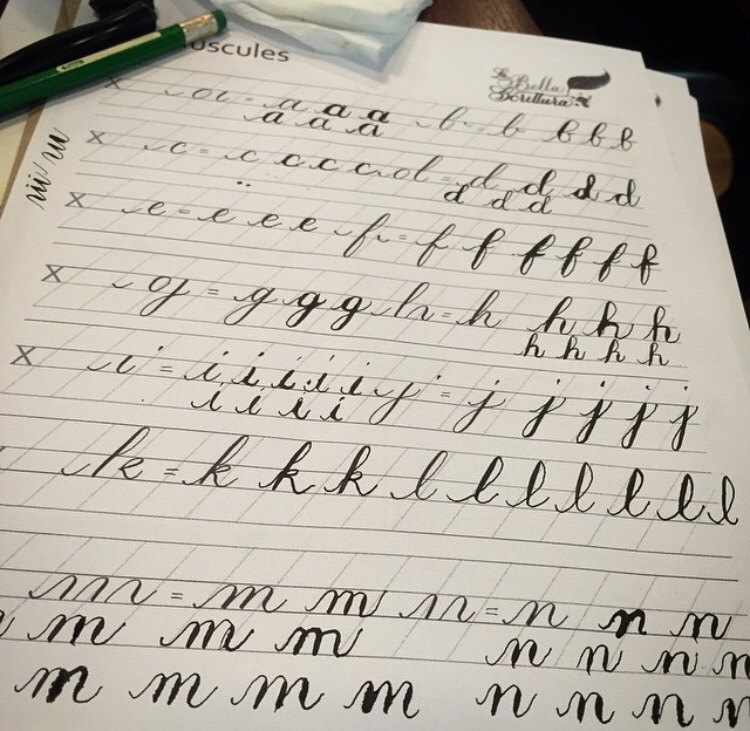 uscules
La Bella
Scrittura
x a = a a a b = b b b b
a a a
x c = c c c c d = d d d d
d d d
x e = e e e f = f f f f f f
x g = g g g h = h h h h
h h h h
x i = i i i i i j = j j j j j
i i i i
k = k k k l l l l l l l
m = m m n = n n n
m m m n n n n
m m m m n n n n